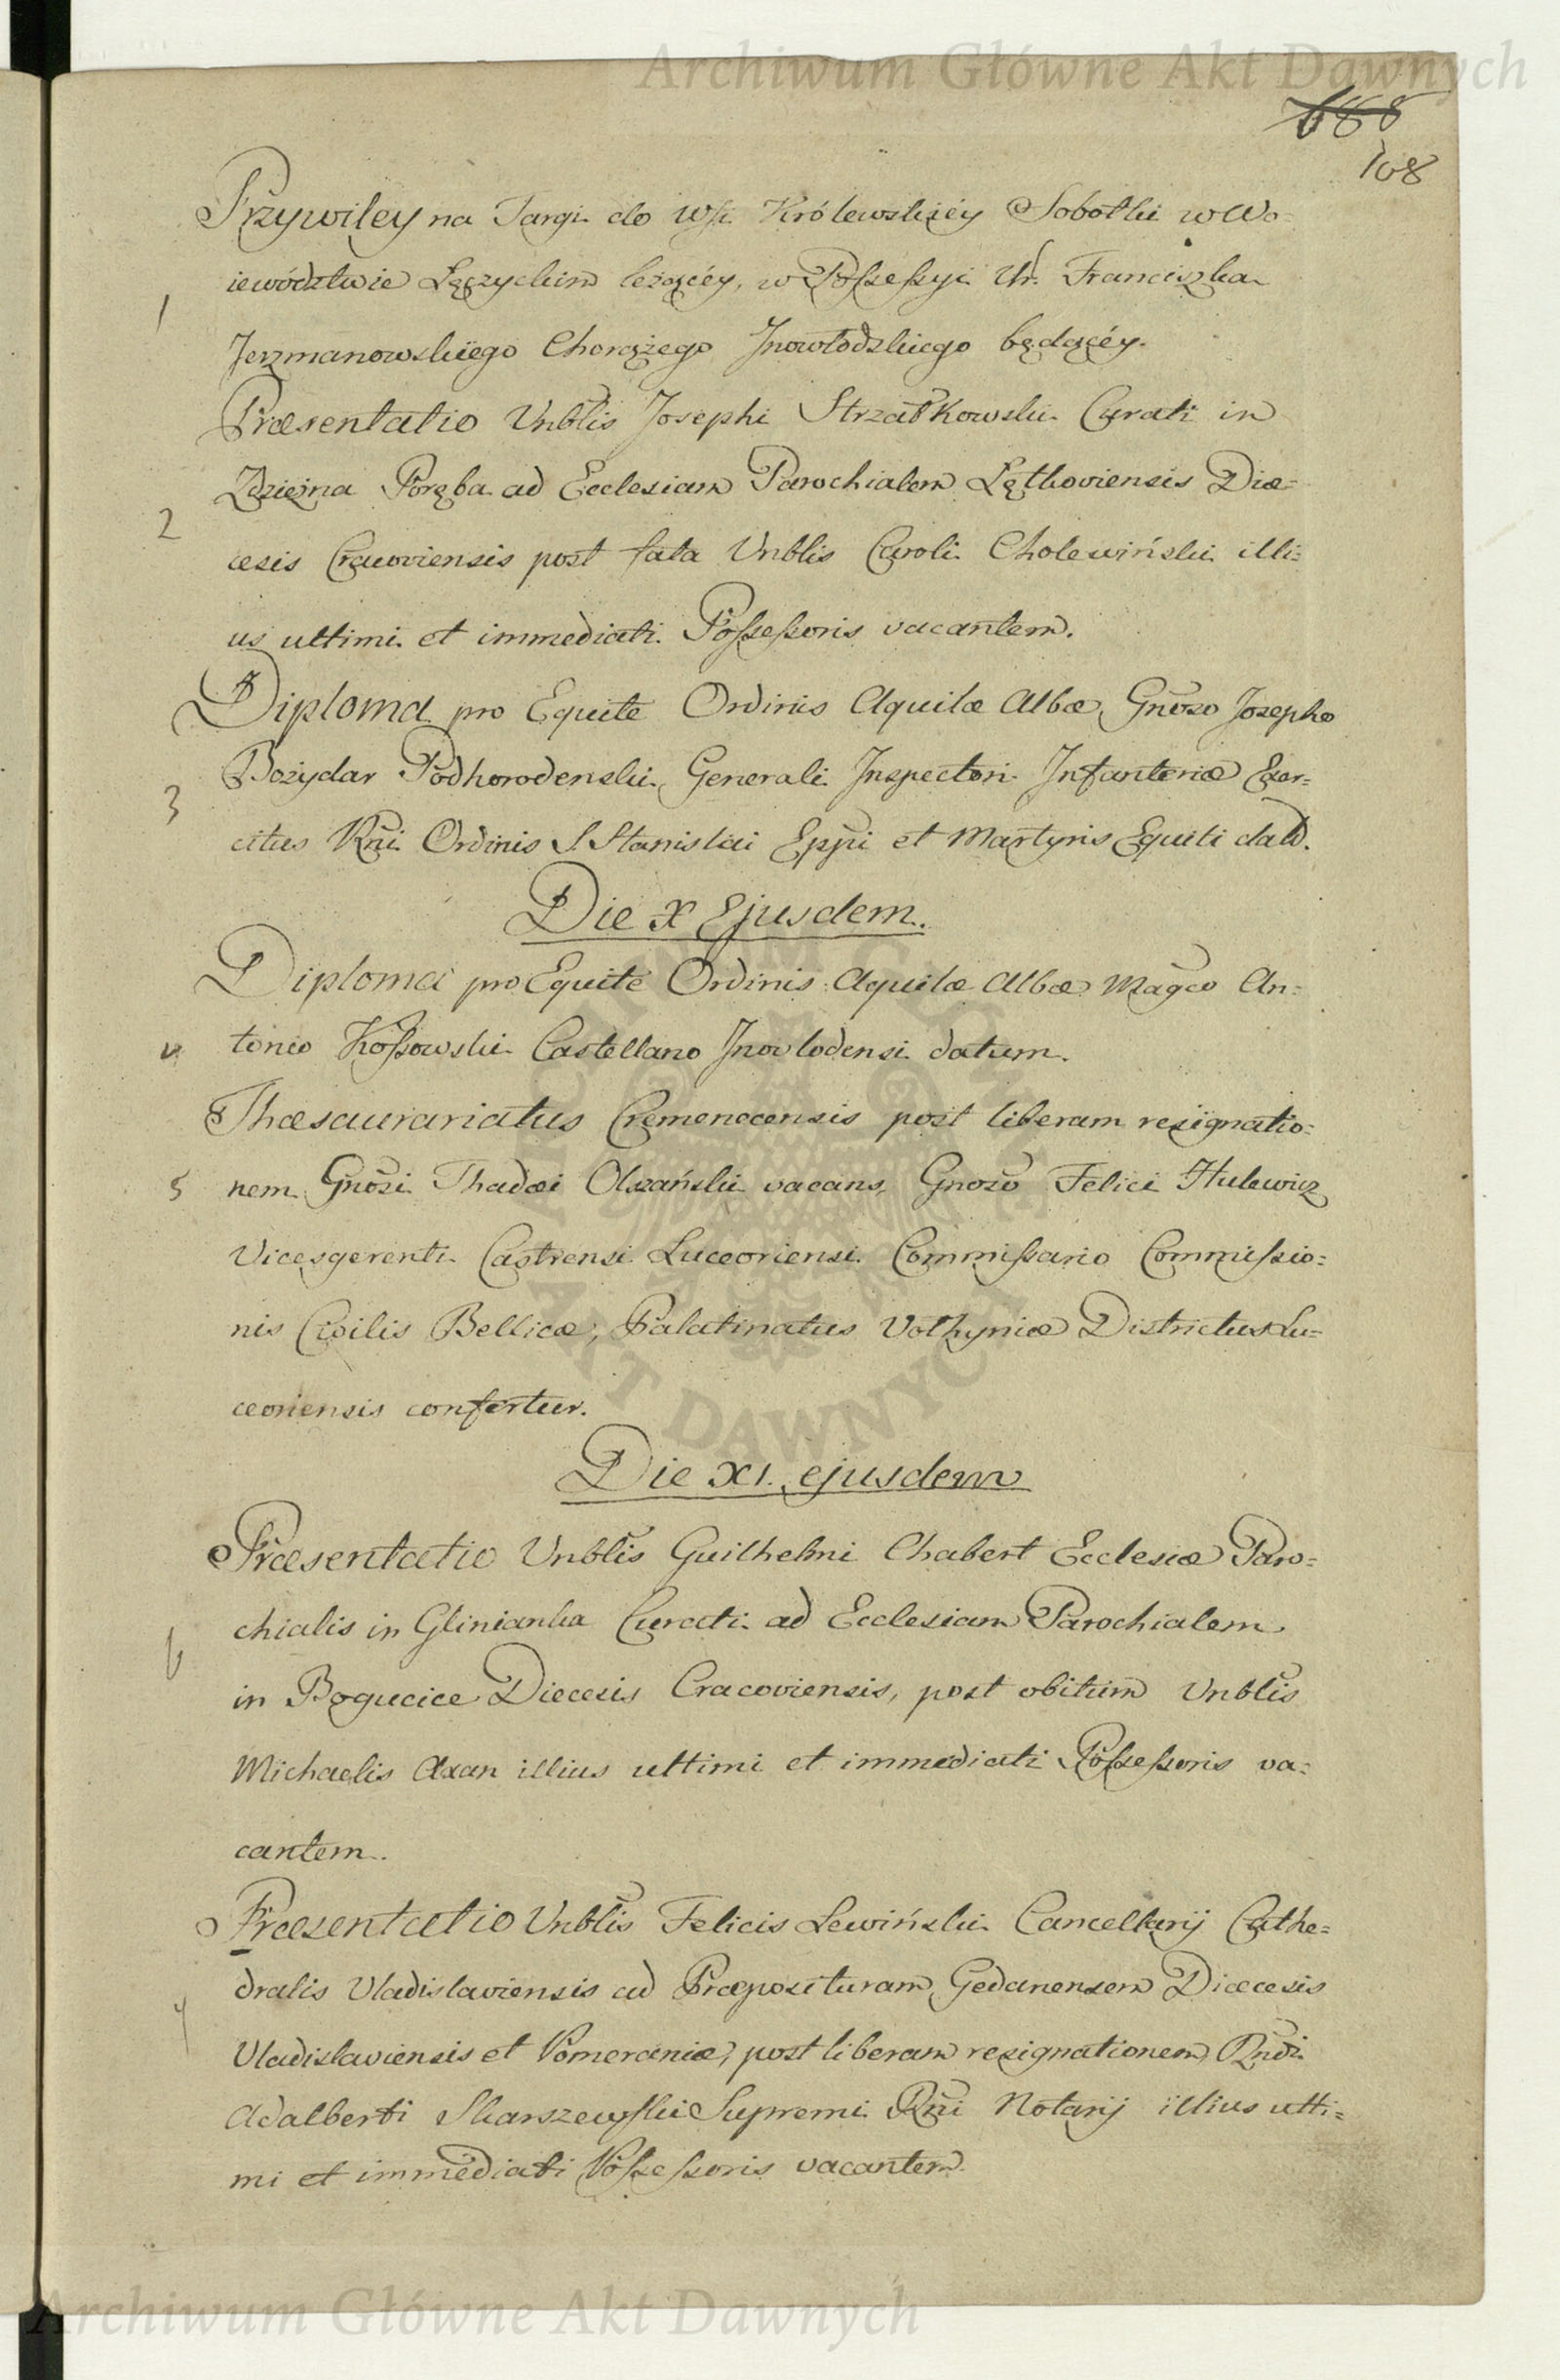 Archiwum Główne Akt Dawnych
688
108
Przywiley na Targi do Wsi Królewskiéy Sobotki w Wo=
iewództwie Łęczyckim leżącéy, w Possessyi Ur. Franciszka
1
Jerzmanowskiego Chorążego Inowłodzkiego będącéy.
Præsentatio Vnblis Josephi Strzałkowski Curati in
Zdzieżna Poręba ad Ecclesiam Parochialem Łętkoviensis Diæ=
2
cesis Cracoviensis post fata Vnblis Caroli Cholewiński illi=
us ultimi et immediati Possessoris vacantem.
Diploma pro Equite Ordinis Aquilæ Albæ Gnoso Josepho
Bożydar Podhorodenski Generali Inspectori Infanteriæ Exer=
3
citus Rni Ordinis S Stanislai Eppi et Martyris Equiti datū.
Die X Ejusdem.
Diploma pro Equite Ordinis Aquilæ Albæ Magco An=
4 tonio Kossowski Castellano Inovlodensi datum.
Thæsaurariatus Cremenecensis post liberam resignatio=
5 nem Gnosi Thadæi Olszański vacans, Gnoso Felici Hulewicz
Vicesgerenti Castrensi Luceoriensi Commissario Commissio=
nis Civilis Bellicæ, Palatinatus Volhyniæ Districtus Lu=
ceoriensis confertur.
Die XI. ejusdem
Præsentatio Vnblis Guilhelmi Chabert Ecclesiæ Paro=
chialis in Glinianka Curati ad Ecclesiam Parochialem
6
in Bogucice Diecesis Cracoviensis, post obitum Vnblis
Michaelis Axan illius ultimi et immediati Possessoris va=
cantem.
Præsentatio Vnblis Felicis Lewiński Cancellarij Cathe=
dralis Vladislaviensis ad Præposituram Gedanensem Diæcesis
7
Vladislaviensis et Pomeraniæ, post liberam resignationem Rndi
Adalberti Skarszewski Supremi Rni Notarij illius ulti=
mi et immediati Possessoris vacantem.
Archiwum Główne Akt Dawnych